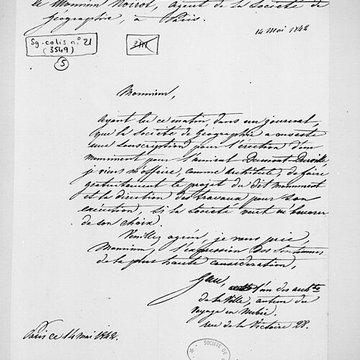 à Monsieur Noirot, agent de la Société de
Géographie, à Paris.
14 mai 1842
Sg. colis n° 21
(3549)
5
Monsieur,
Ayant lu ce matin, dans un journal
que la Société de Géographie a ouvert
une souscription pour l'érection d'un
monument pour l'amiral Dumont Durville,
je viens m'offrir, comme architecte, de faire
gratuitement le projet du dit monument
et la direction des travaux pour son
exécution, si la Société veut m'honorer
de son choix.
Veuillez agréer, je vous prie
Monsieur, l'expression des sentimens
de la plus haute considération,
Gau,
l'un des
de la Ville, auteur du
voyage en Nubie.
rue de la Victoire 28.
Paris ce 14 mai 1842.